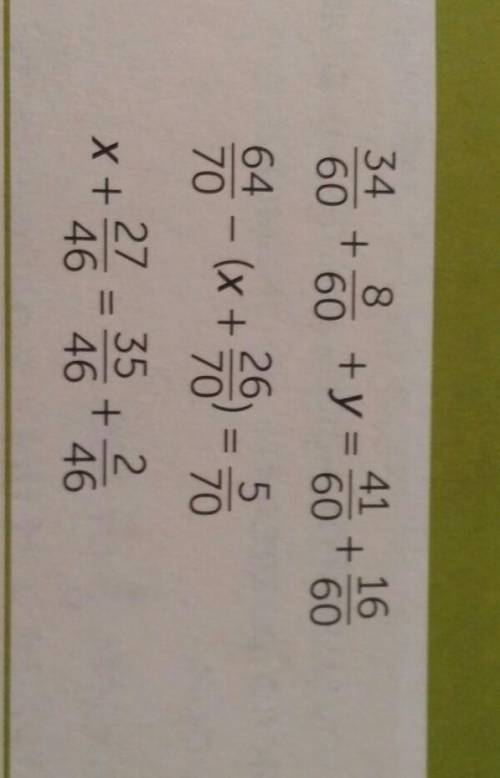 34/60 + 8/60 + y = 41/60 + 16/60
64/70 − (x + 26/70) = 5/70
x + 27/46 = 35/46 + 2/46